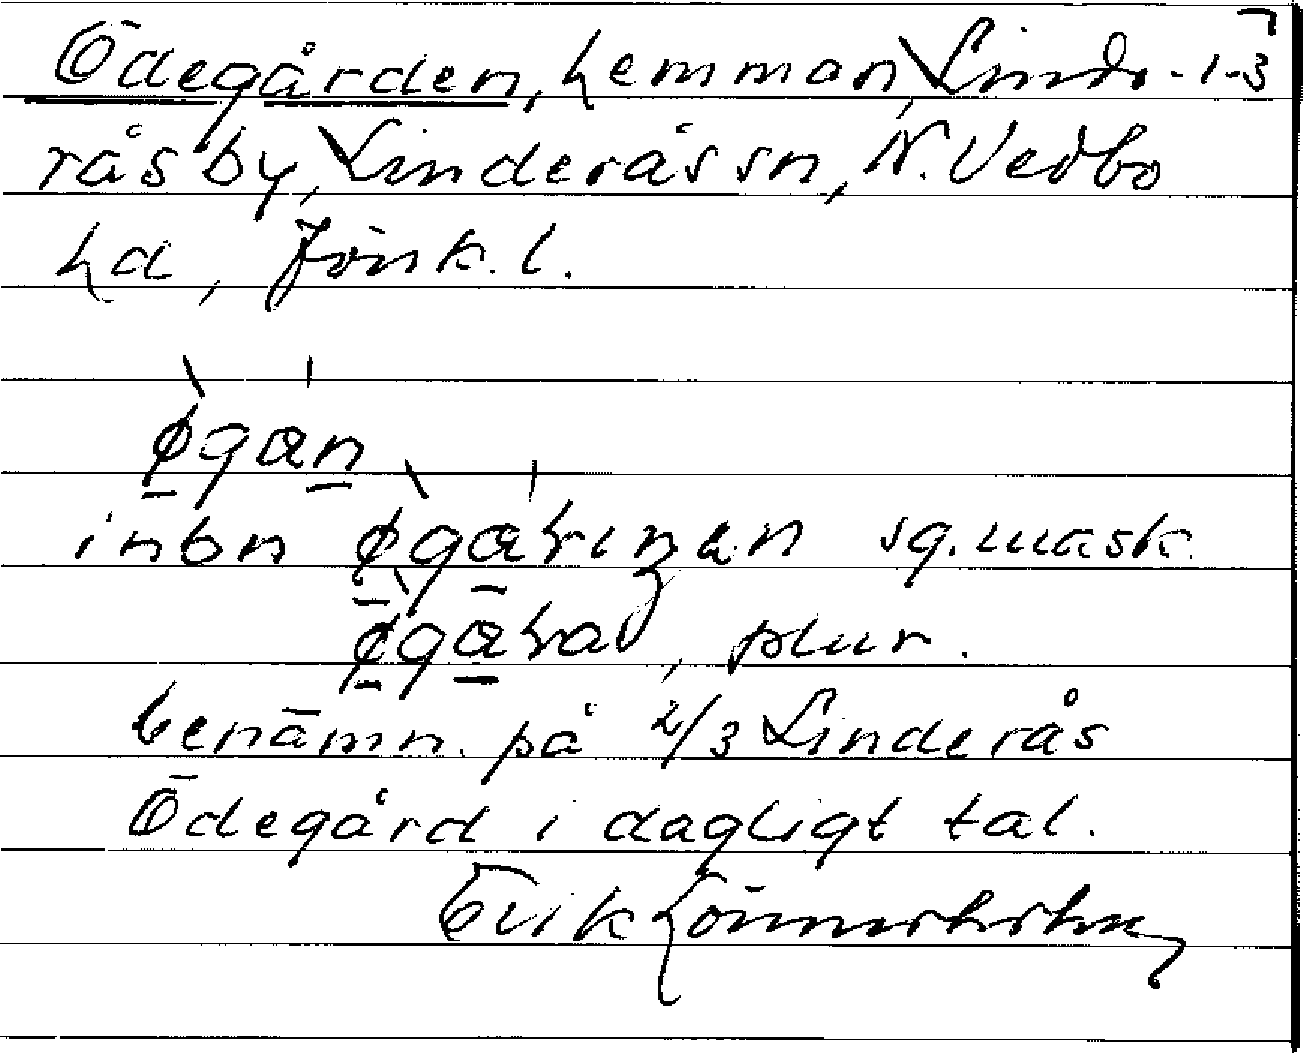 Ödegården, hemman, Linde- 1-3
rås by, Linderås sn, N. Vedbo
hd, Jönk. l.
øgan
inbn sg. mask.
, plur.
benämn. på 2/3 Linderås
Ödegård i dagligt tal.
Erik